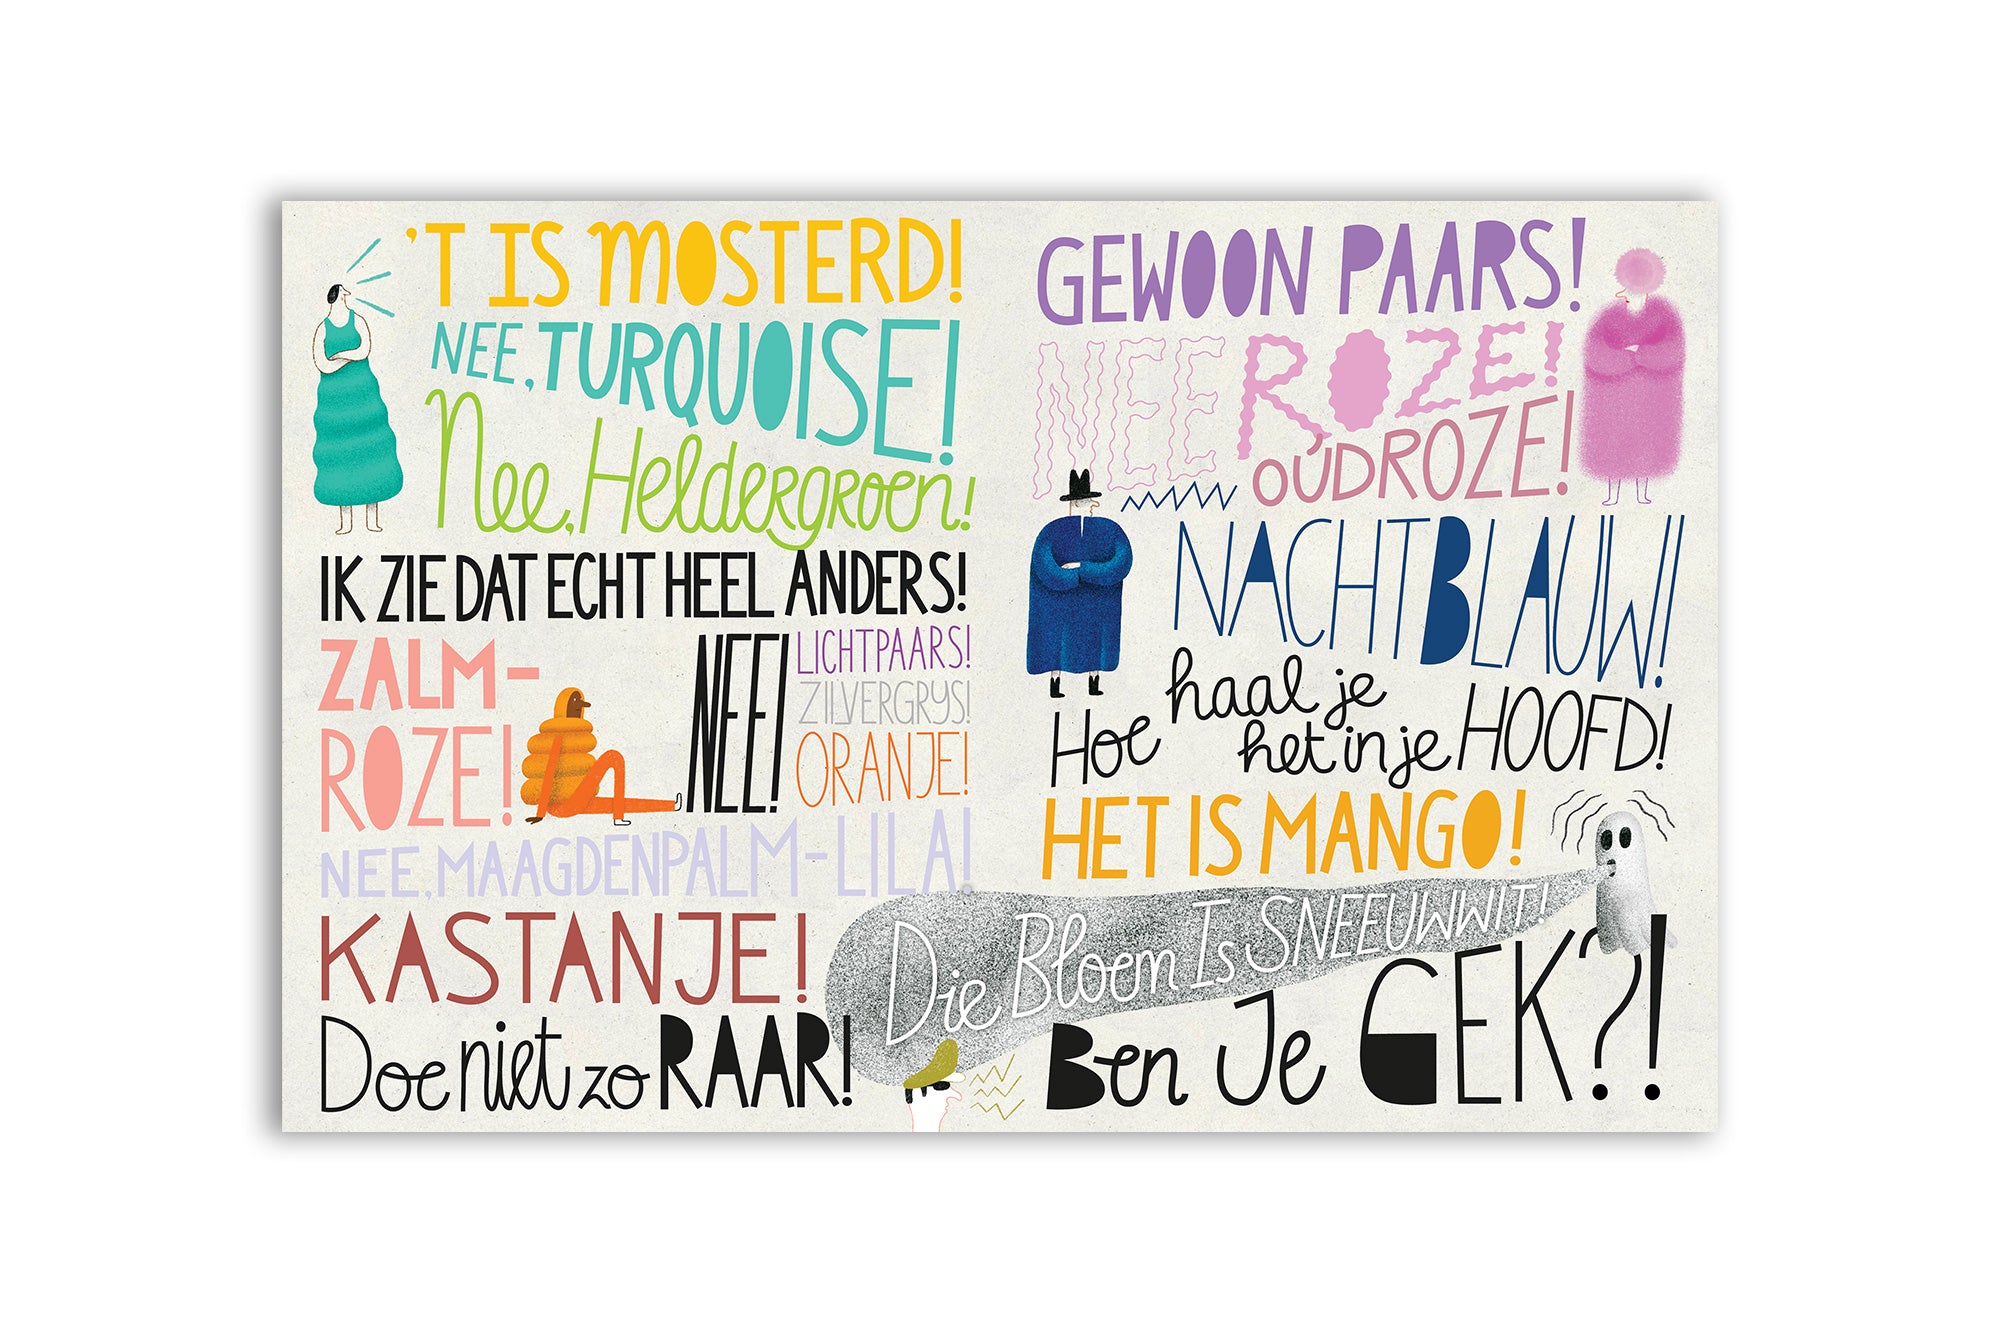 'T IS MOSTERD!
NEE, TURQUOISE!
Nee, Heldergroen!
IK ZIE DAT ECHT HEEL ANDERS!
ZALM-
ROZE!
NEE!
LICHTPAARS!
ZILVERGRYS!
ORANJE!
NEE, MAAGDENPALM-LILA!
KASTANJE!
Doe niet zo RAAR!
GEWOON PAARS!
NEE ROZE!
OUDROZE!
NACHTBLAUW!
Hoe haal je
het in je HOOFD!
HET IS MANGO!
Die Bloem Is SNEEUWWIT!
Ben Je GEK?!